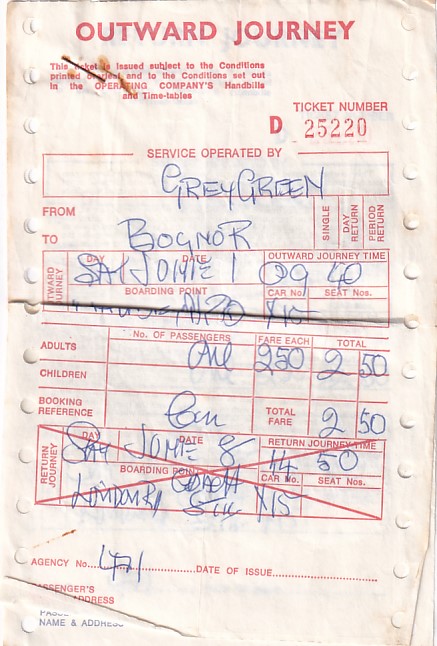 OUTWARD JOURNEY
This ticket is issued subject to the Conditions
printed and to the Conditions set out
in the OPERATING COMPANY'S Handbills
and Time-tables
TICKET NUMBER
D 25220
SERVICE OPERATED BY
GREY GREEN
FROM
SINGLE
DAY RETURN
PERIOD RETURN
TO BOGNOR
OUTWARD JOURNEY
DAY DATE OUTWARD JOURNEY TIME
SAT 1 09 40
BOARDING POINT CAR No. SEAT Nos.
X15
No. OF PASSENGERS FARE EACH TOTAL
ADULTS 250 2 50
CHILDREN
BOOKING REFERENCE TOTAL FARE 2 50
RETURN JOURNEY
DAY DATE RETURN JOURNEY TIME
SAT 8 14 50
BOARDING POINT CAR No. SEAT Nos.
COACH X15
AGENCY No. DATE OF ISSUE
PASSENGER'S
ADDRESS
NAME & ADDRESS